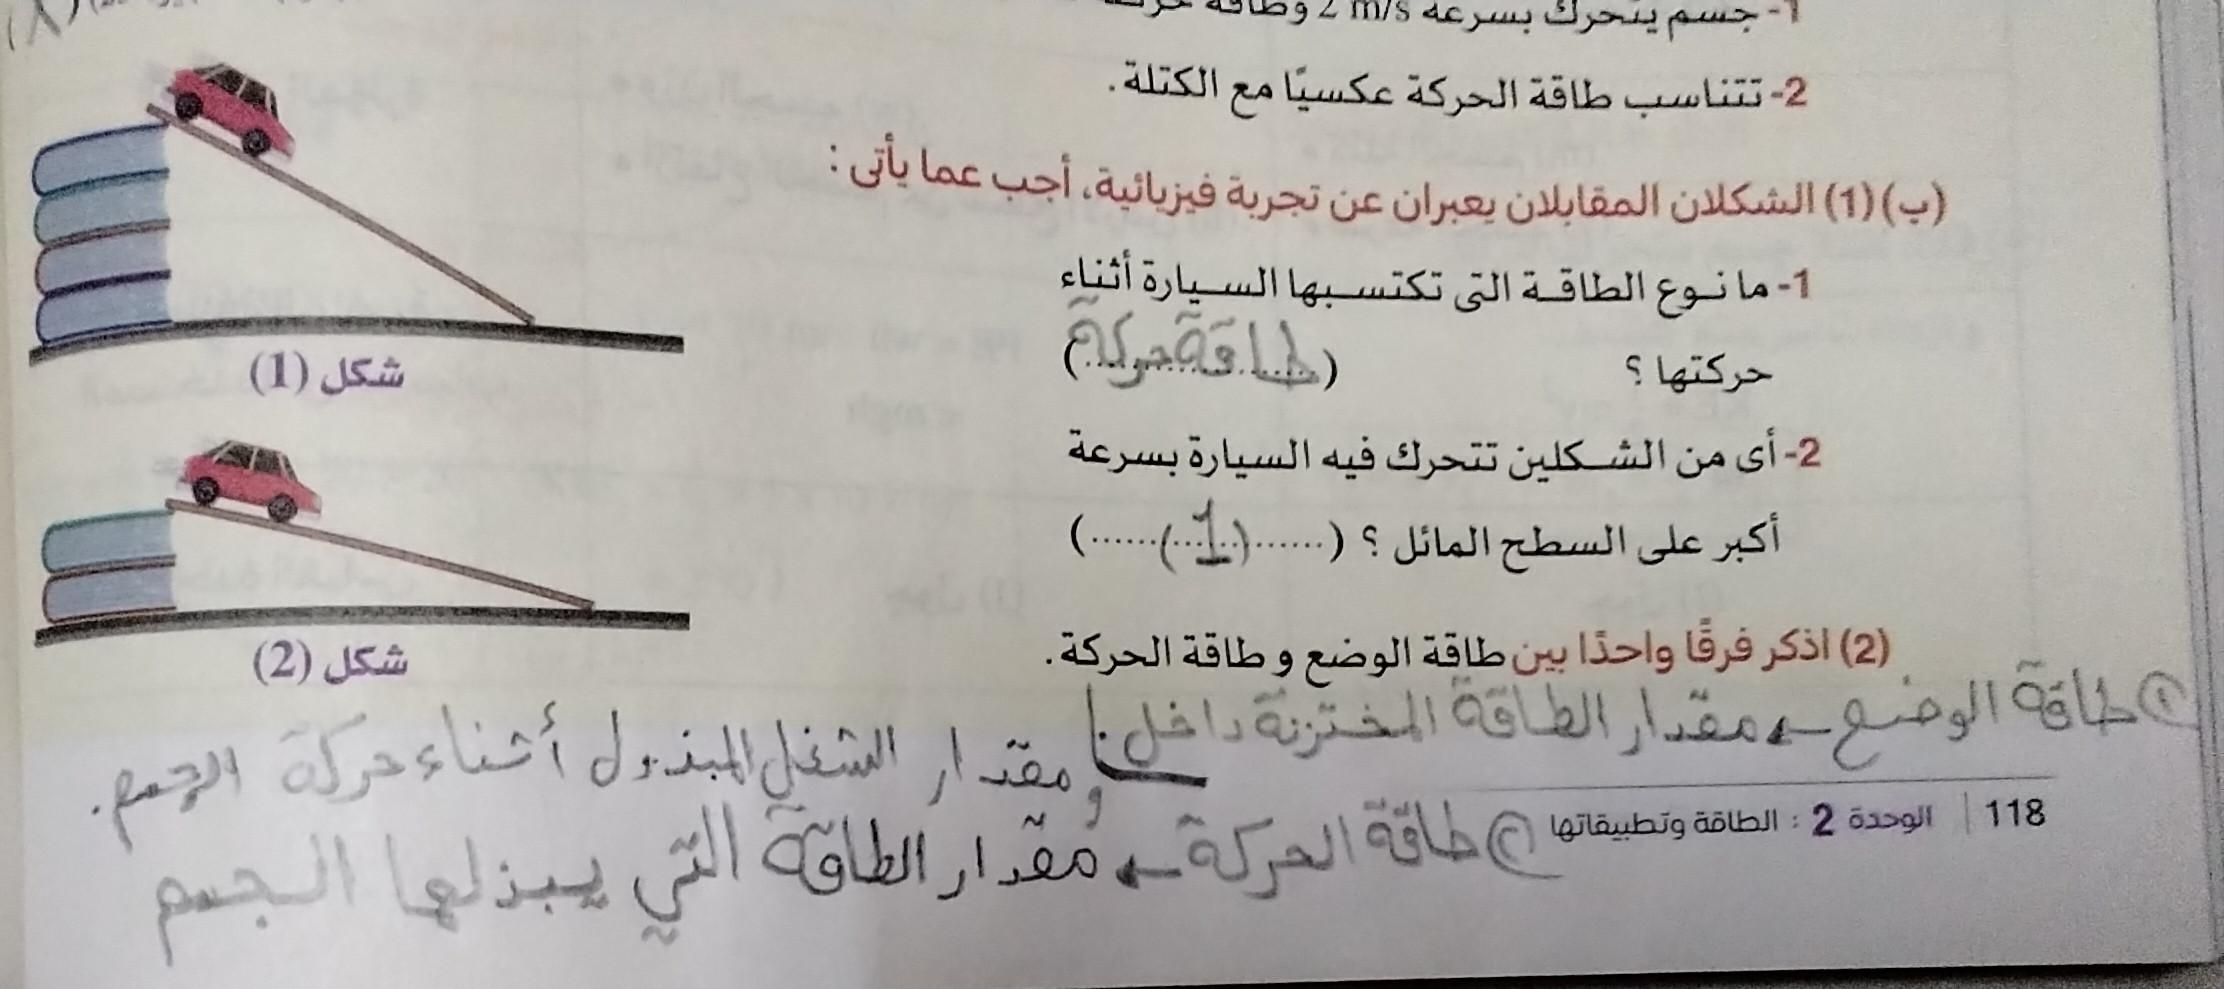 1- جسم يتحرك بسرعة 2 m/s وطاقة
2- تتناسب طاقة الحركة عكسيًا مع الكتلة.
(ب) (1) الشكلان المقابلان يعبران عن تجربة فيزيائية، أجب عما يأتى :
1- ما نوع الطاقة التى تكتسبها السيارة أثناء
حركتها ؟ (طاقة حركة)
شكل (1)
2- أى من الشكلين تتحرك فيه السيارة بسرعة
أكبر على السطح المائل ؟ (......(1)......)
شكل (2)
(2) اذكر فرقًا واحدًا بين طاقة الوضع و طاقة الحركة.
١ طاقة الوضع ← مقدار الطاقة المختزنة داخل
ومقدار الشغل المبذول أثناء حركة الجسم.
٢ طاقة الحركة ← مُقدار الطاقة التي يبذلها الجسم
118 | الوحدة 2 : الطاقة وتطبيقاتها